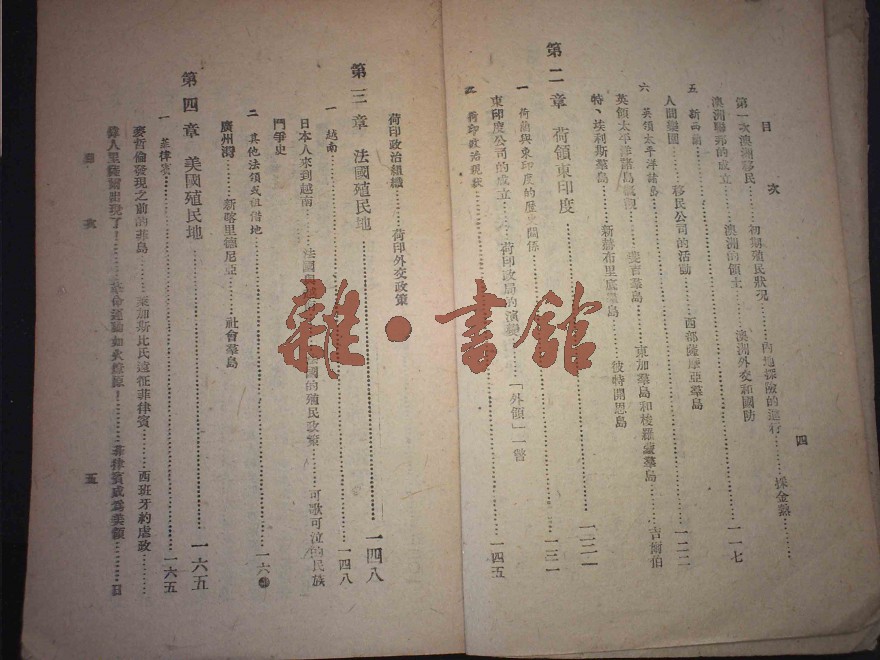 目次
四
第一次澳洲移民……初期殖民狀況……內地探險的進行……採金熱……
澳洲聯邦的成立……澳洲的領土……澳洲外交和國防
五 新西蘭……一一七
人間樂園……移民公司的活動……西部薩摩亞羣島
六 英領太平洋諸島……一二二
英領太平洋諸島……斐吉羣島……東加羣島和梭羅蒙羣島……吉爾伯
特、埃利斯羣島……新赫布里底羣島……彼特開恩島
第二章 荷領東印度……一三一
一 荷蘭與東印度的歷史關係……一三一
東印度公司的成立……荷印政局的演變……「外領」一瞥
二 荷印政治現狀……一四五
荷印政治組織……荷印外交政策
第三章 法國殖民地……一四八
一 越南……一四八
日本人來到越南……法國……國的殖民政策……可歌可泣的民族
鬥爭史
二 其他法領或租借地……一六
廣州灣……新喀里德尼亞……社會羣島
第四章 美國殖民地……一六五
一 菲律賓……一六五
麥哲倫發現之前的菲島……萊加斯比氏遠征菲律賓……西班牙的虐政……
偉人里薩爾出現了!……革命運動如火燎原!……菲律賓成為美領……日
目次
五
雜·書館